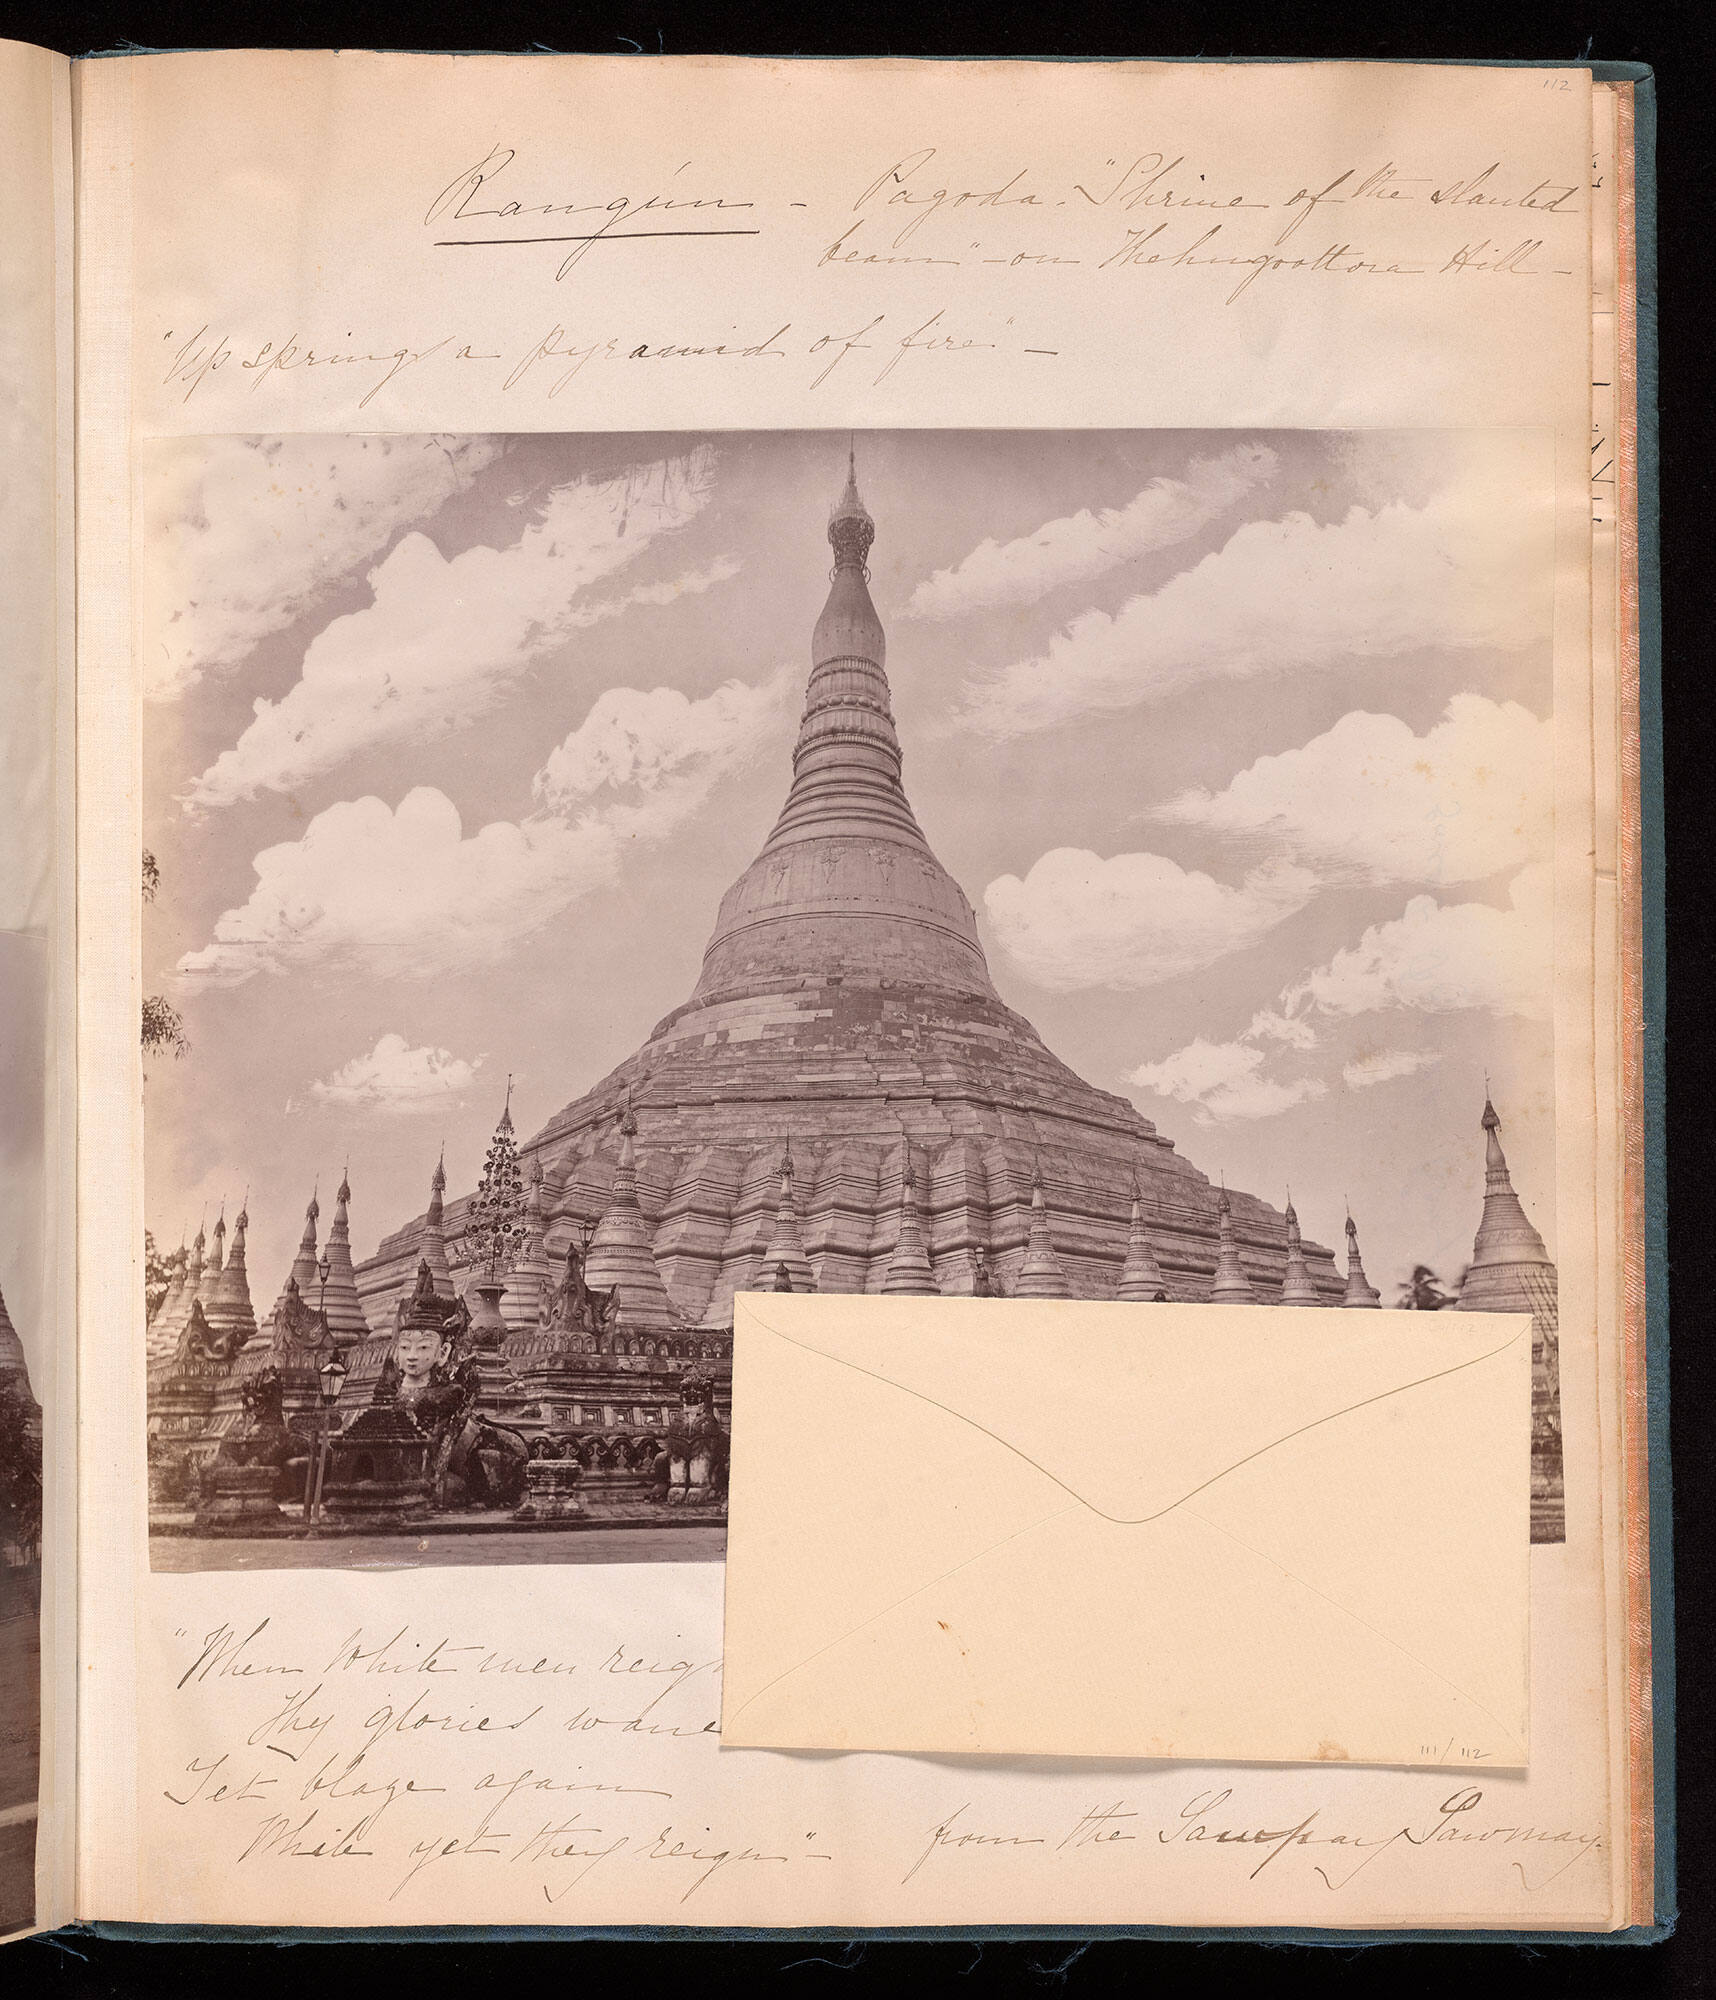 112
Rangún - Pagoda. "Shrine of the slanted
beam" - on Thehngoottora Hill -
"Up springs a pyramid of fire" -
"When White men reign
Thy glories wane
Yet blaze again
While yet they reign" -
from the Sawpay Sawmay.
111/112